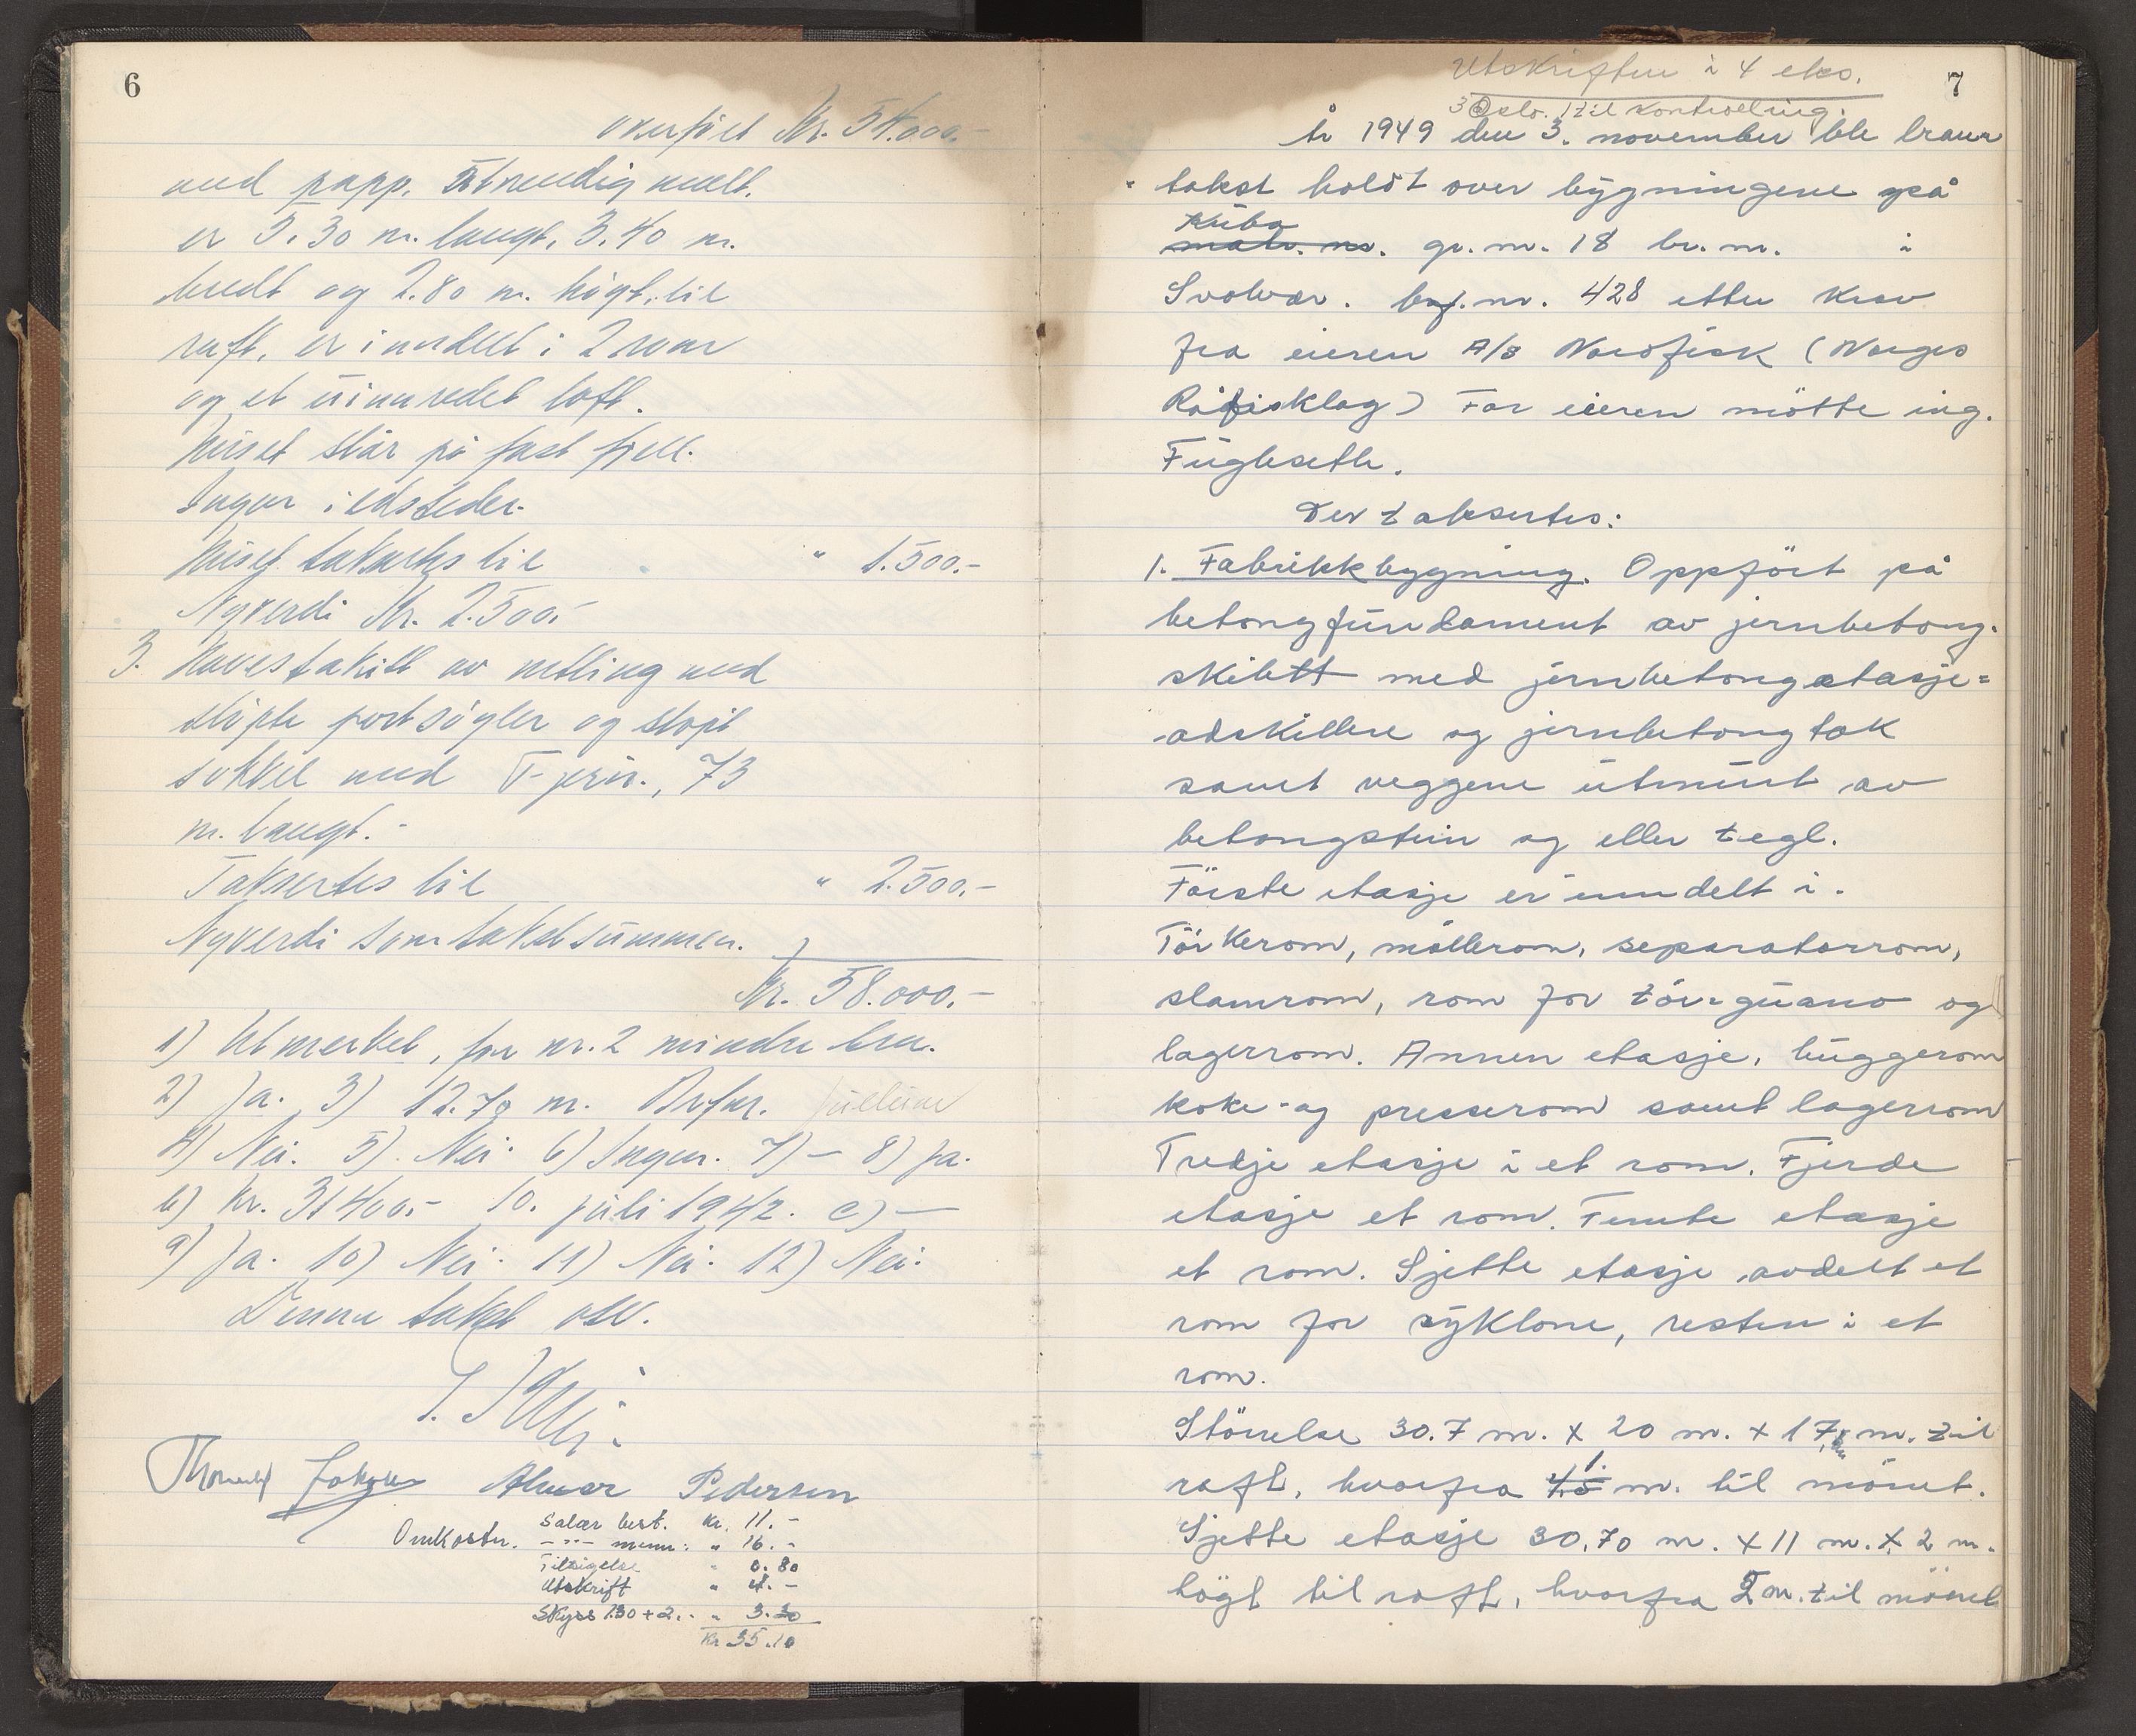 6
overført Kr. 54.000.-
med papp. Utvendig målt.
er 5.30 m. langt, 3.40 m.
bredt og 2.80 m. högt, til
raft, er inndelt i 2 rom
og et uinnredet loft.
Huset står på fast fjell.
Ingen ildsteder.
Huset taksertes til " 1.500.-
Nyverdi Kr. 2.500.-
3. Havestakitt av netting med
støpte portsöyler og støpt
sokkel med T-jern., 73
m. langt.-
Taksertes til " 2.500.-
Nyverdi som takstsummen.
Kr. 58.000.-
1) Utmerket, for nr. 2 mindre bra.
2) Ja. 3) 12.70 m.
4) Nei. 5). Nei. 6) Ingen. 7) — 8) Ja.
b) Kr. 31400.- 10. juli 1942. c) —
9) Ja. 10) Nei. 11) Nei. 12) Nei.
Denne takst osv.
Almar Pedersen
Omkostn. Salær best. Kr. 11.-
-"- menn: " 16.-
Tilsigelse " 0.80
Utskrift " 4.-
Skyss 1.30 + 2.- " 3.30
Kr. 35.10
Utskriften i 4 eks.
7
3 Oslo. 1 til kontrollering.
År 1949 den 3. november ble brann
takst holdt over bygningene på
Kuba
matr. nr. gr. nr. 18 br. nr. i
Svolvær. byf. nr. 428 etter krav
fra eieren A/S Nordfisk (Norges
Råfisklag) For eieren mötte ing.
Fugleseth.
Der taksertes:
1. Fabrikkbygning. Oppfört på
betongfundament av jernbetong.
skilett med jernbetongetasje=
adskillere og jernbetongtak
samt veggene utmurt av
betongstein og eller tegl.
Förste etasje er inndelt i.
Törkerom, möllerom, separatorrom,
slamrom, rom for törrguano og
lagerrom. Annen etasje, huggerom
koke- og presserom samt lagerrom
Tredje etasje i et rom. Fjerde
etasje et rom. Femte etasje
et rom. Sjette etasje avdelt et
rom for syklone, resten i et
rom.
Störrelse 30.7 m. x 20 m. x 17, m. til
raft, hvorfra 4.5 1. m. til mönet.
Sjette etasje 30.70 m. x 11 m. x 2 m.
högt til raft, hvorfra 2 m. til mönet